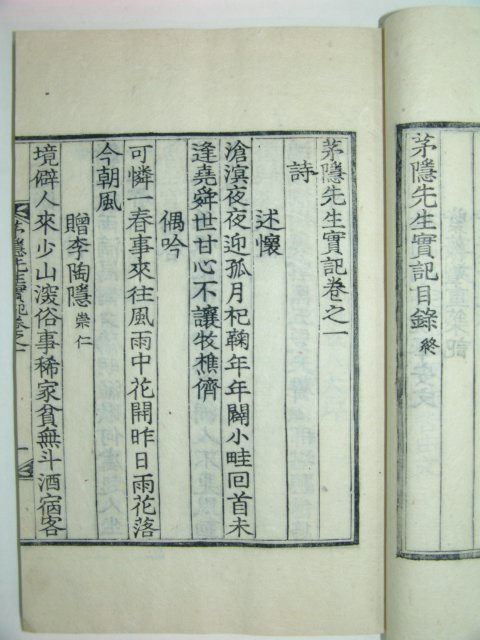 茅隱先生實記目錄 終
茅隱先生實記卷之一
詩
述懷
滄溟夜夜迎孤月杞鞠年年闢小畦回首未
逢堯舜世甘心不讓牧樵儕
偶吟
可憐一春事來往風雨中花開昨日雨花落
今朝風
贈李陶隱 崇仁
境僻人來少山深俗事稀家貧無斗酒宿客
茅隱先生實記卷之一
一